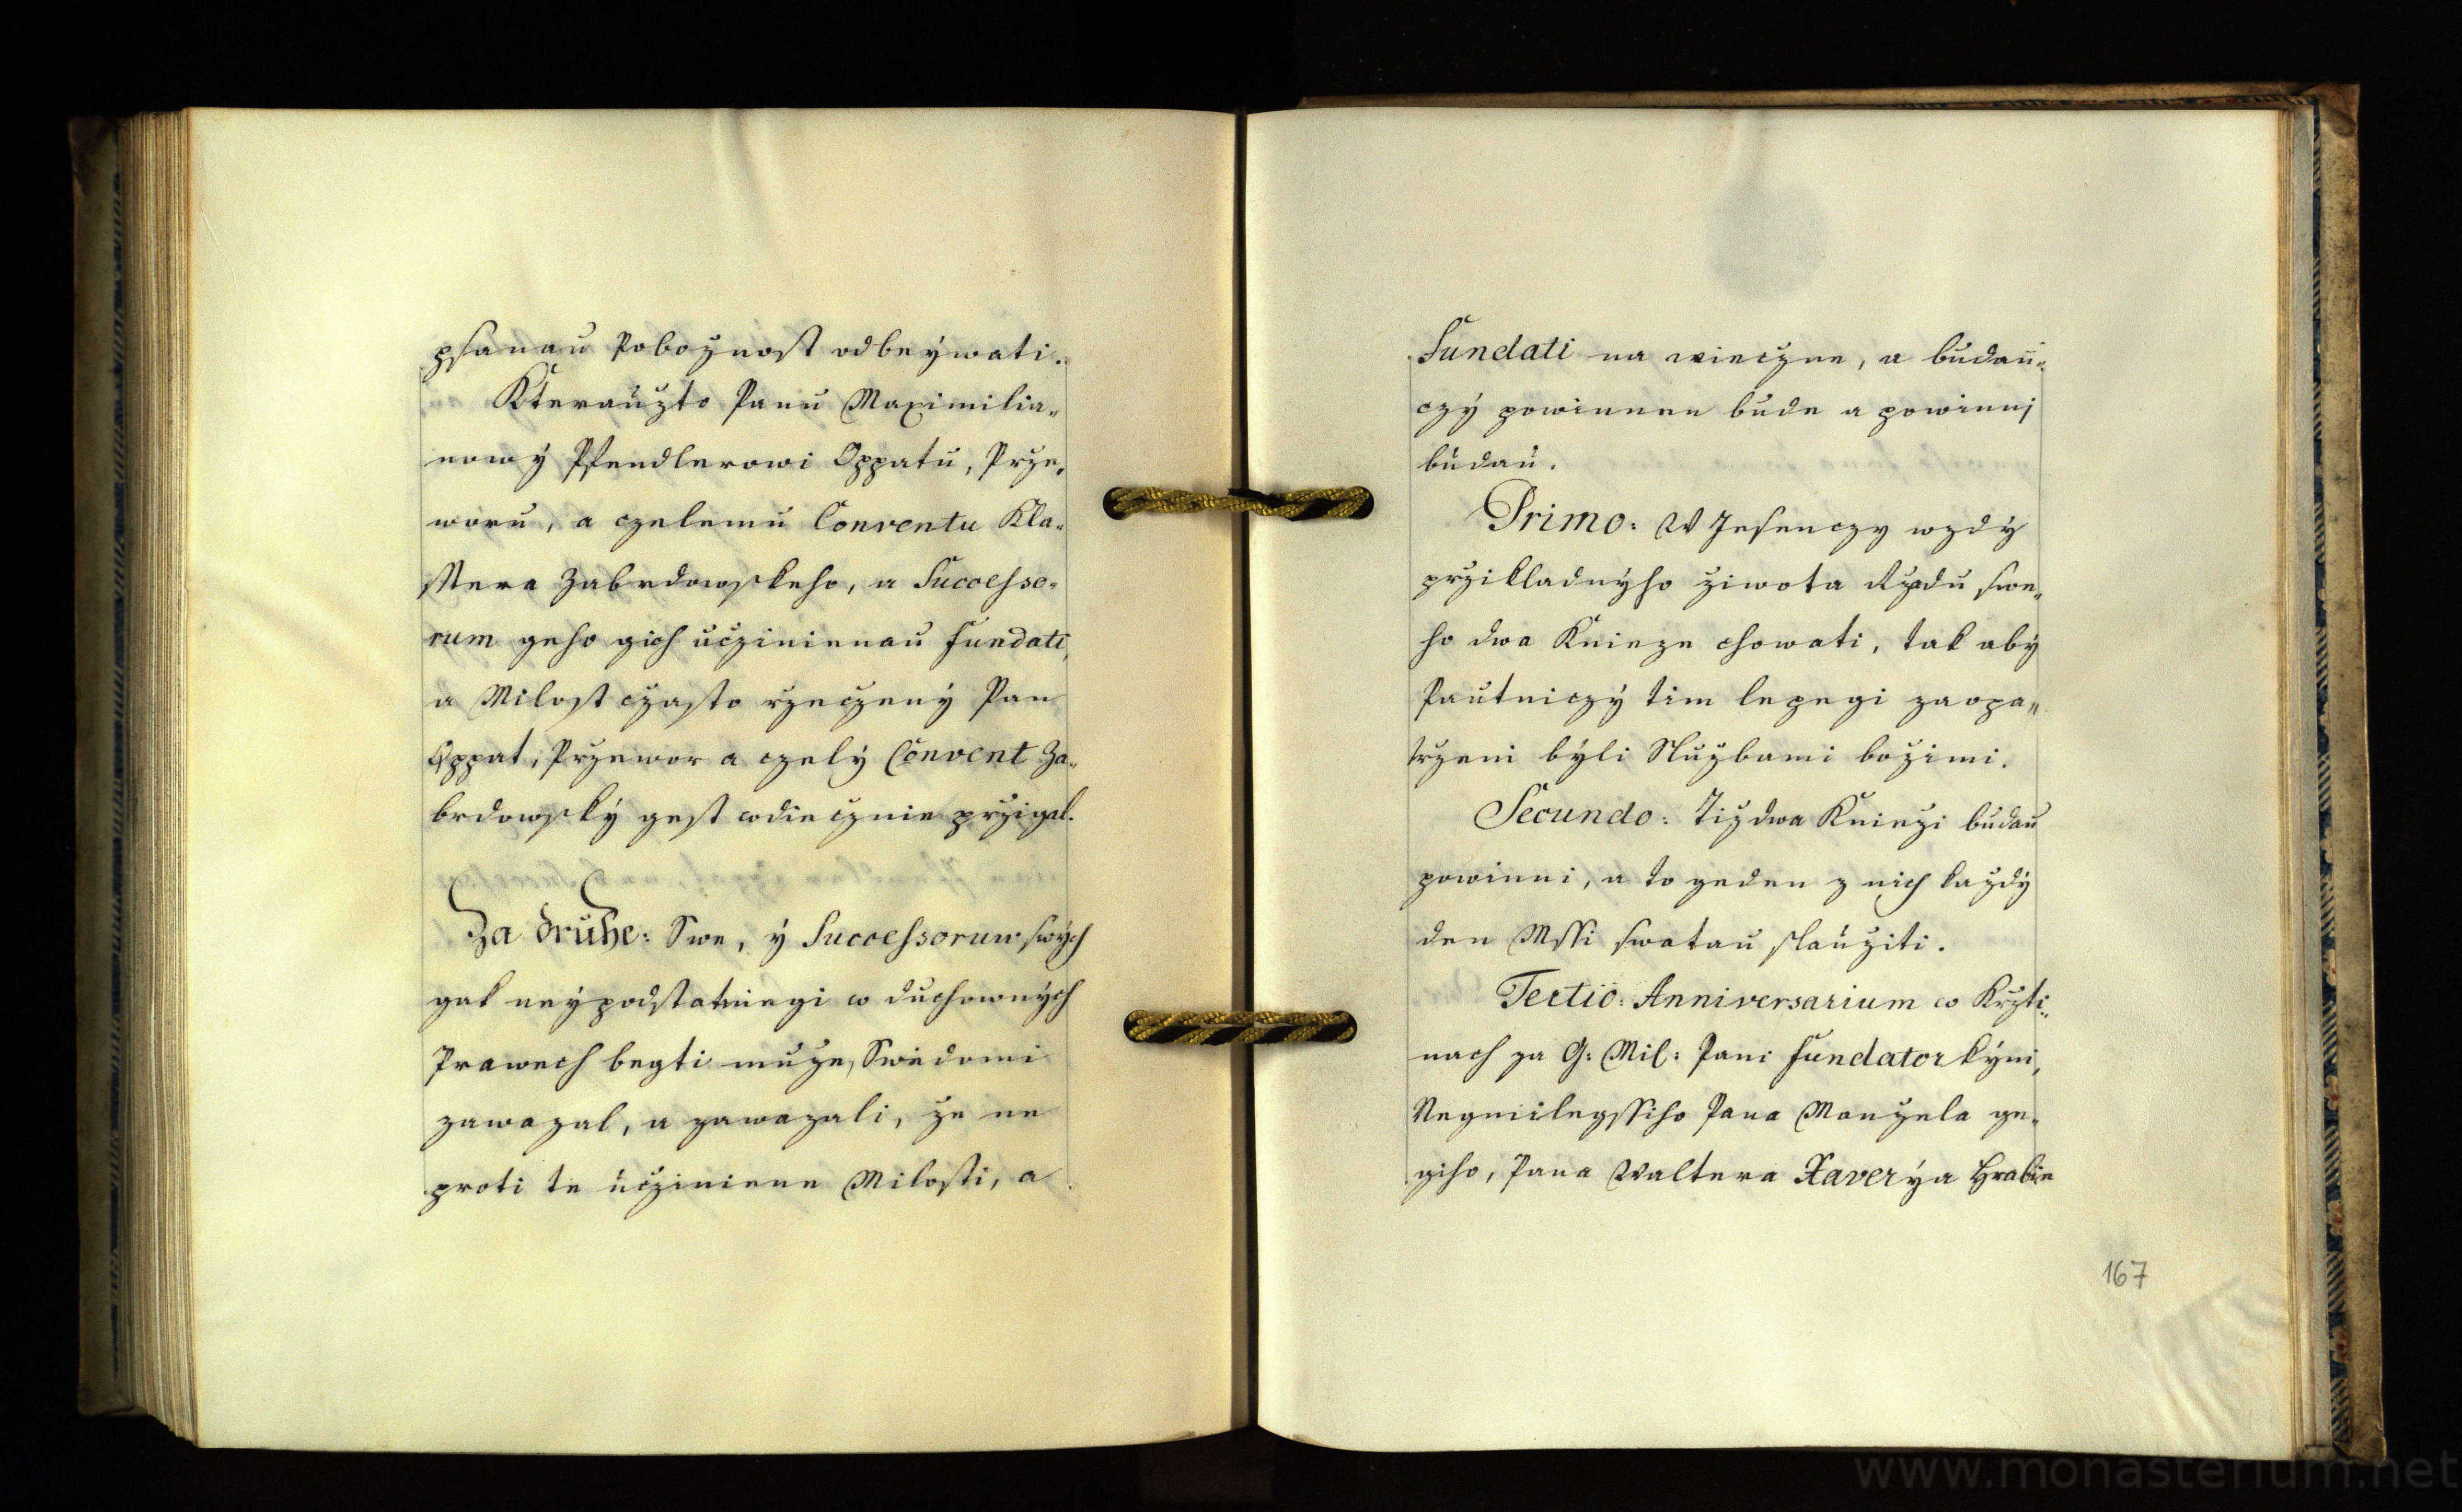 psanau Pobožnost odbeýwati.
Kteraužto Panu Maximilia„
nowý Pfendlerowi Oppatu, Prze„
woru, a czelemu Conventu Kla„
sstera Zabrdowskeho, a Successo„
rum geho gich učzinienau fundati,
a Milost cžasto rzecžený Pan
Oppat, Pržewor a czelý Convent Za„
brdowský gest wdiecžnie pržigal.
Za druhe: Swe, ý Successoruw swých
gak neýpodstatniegi w duchowných
Prawech begti muže, Swedomi
zawazal, a zawazali, že ne
proti te učziniene Milosti, a
Fundati na wiecžne, a budau„
czý powinnen bude a powinni
budau.
Primo: W Jesenczy wzdý
pržikladnýho žiwota Ržadu swe„
ho dwa Knieze chowati, tak abý
Pautniczý tim lepegi zaopa„
trženi býli Službami božimi.
Secundo: Tiz dwa Knieži budau
powinni, a to geden z nich každý
den Mssi swatau slaužiti.
Tertio: Anniversarium w Kržti„
nach za G: Mil: Pani fundatorkýni,
Negmilegssiho Pana Manžela ge„
giho, Pana Waltera Xaverýa Hrabie
167
www.monasterium.net